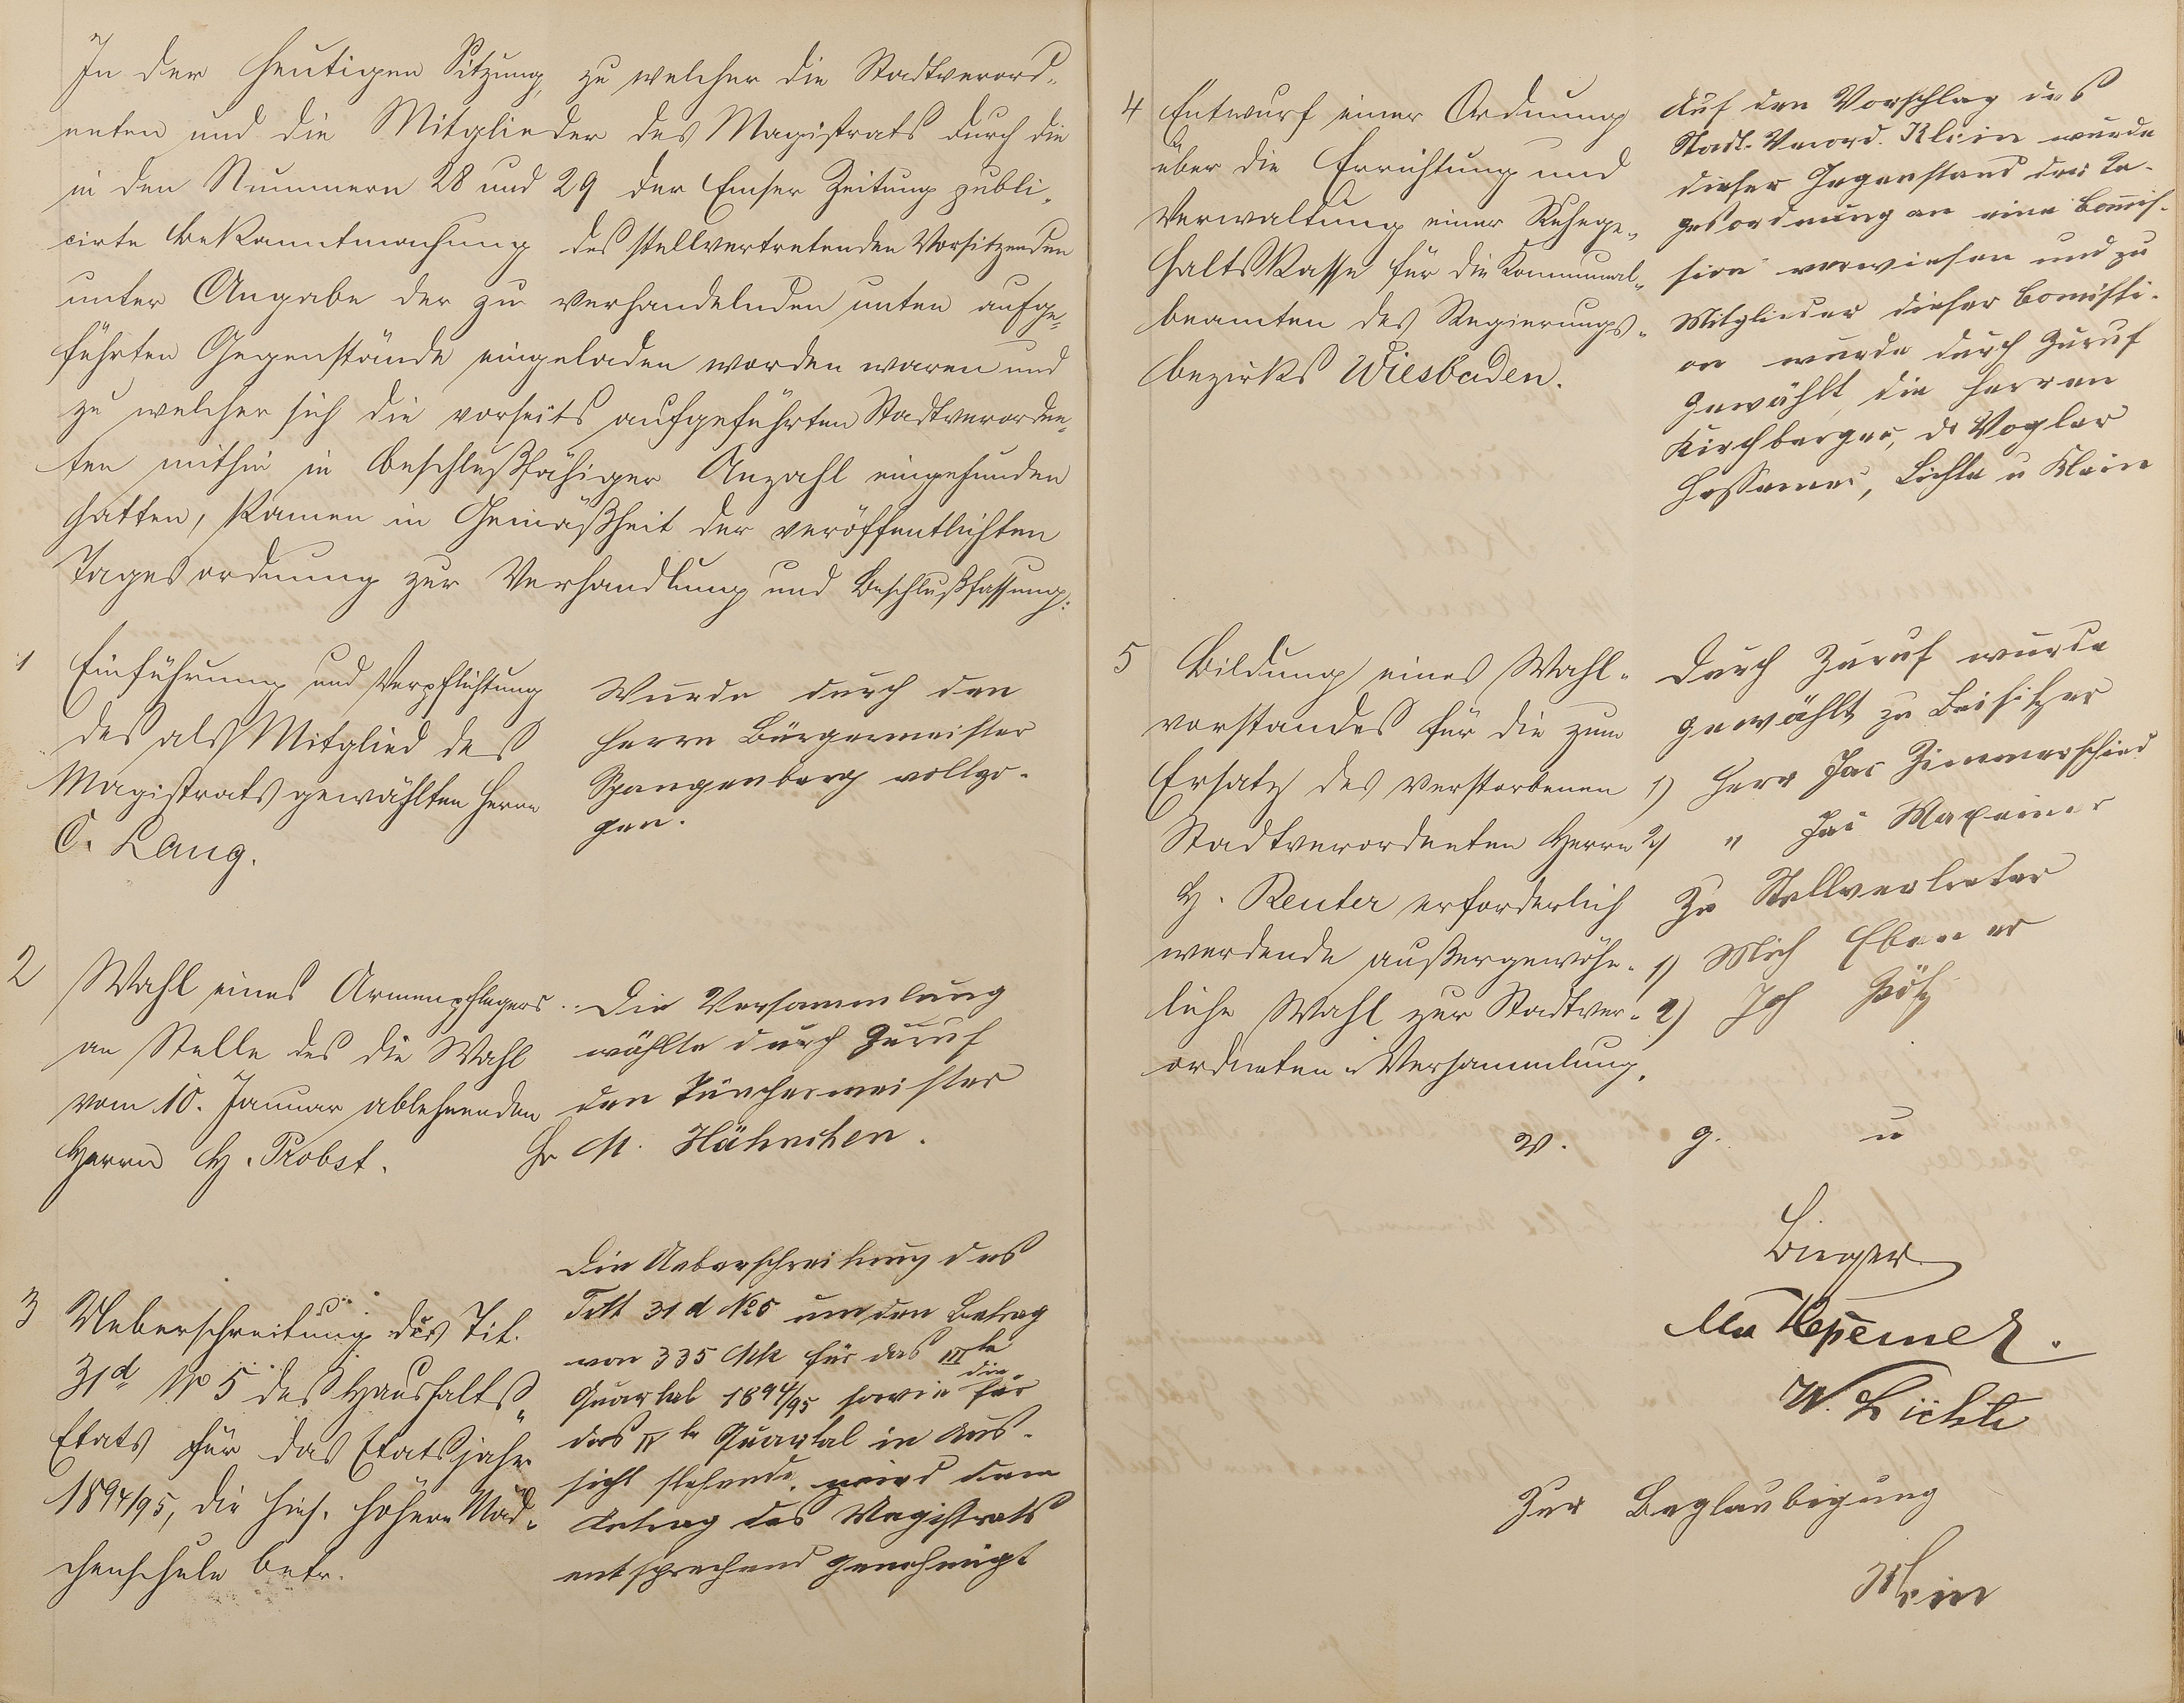 In der heutigen Sitzung, zu welcher die Stadtverord-
neten und die Mitglieder des Magistrats durch die
in den Nummern 28 und 29 der Emser Zeitung publi-
cirte Bekanntmachung des stellvertretenden Vorsitzenden
unter Angabe der zu verhandelnden unten aufge-
führten Gegenstände eingeladen worden waren und
zu welcher sich die vorseits aufgeführten Stadtverordne-
ten mithin in beschlußfähiger Anzahl eingefunden
hatten, kamen in Gemäßheit der veröffentlichten
Tagesordnung zur Verhandlung und Beschlußfassung:
1 Einführung und Verpflichtung
des als Mitglied des
Magistrats gewählten Herrn
C. Lang.
Wurde durch den
Herrn Bürgermeister
Spangenberg vollzo-
gen.
2 Wahl eines Armenpflegers
an Stelle des die Wahl
vom 10. Januar ablehnenden
Herrn H. Probst.
Die Versammlung
wählte durch Zuruf
den Tünchermeister
Hr M. Hähnchen.
3 Ueberschreitung des Tit.
31d No 5 des Haushalts-
Etats für das Etatsjahr
1894/95, die hies. höhere Mäd-
chenschule betr.
Die Ueberschreitung des
Titt 31 d No 5 um den Betrag
von 335 Mk für das IIIte
Quartal 1894/95 sowie die für
das IVte Quartal in Aus-
sicht stehende, wird dem
Antrag des Magistrats
entsprechend genehmigt
4 Entwurf einer Ordnung
über die Errichtung und
Verwaltung einer Ruhege-
haltskasse für die Kommunal-
beamten des Regierungs-
bezirks Wiesbaden.
Auf den Vorschlag des
Stadt-Verord. Klein wurde
dieser Gegenstand der Ta-
gesordnung an eine Commis-
sion verwiesen und zu
Mitglieder dieser Comissi-
on wurde durch Zuruf
gewählt, die Herren
Kirchberger, Dr Vogler
Hossemer, Lichte u Klein
5 Bildung eines Wahl-
vorstandes für die zum
Ersatz des verstorbenen
Stadtverordneten Herrn
H. Reuter erforderlich
werdende außergewöhn-
liche Wahl zur Stadtver-
ordneten-Versammlung.
Durch Zuruf wurde
gewählt zu Beisitzer
1) Herr Jac Zimmerschied
2) " Jac Maxeiner
Zu Stellvertreter
1) Mich Ebener
2) Joh Götz
v. g. u
Bieger
W. Lichte
Zur Beglaubigung